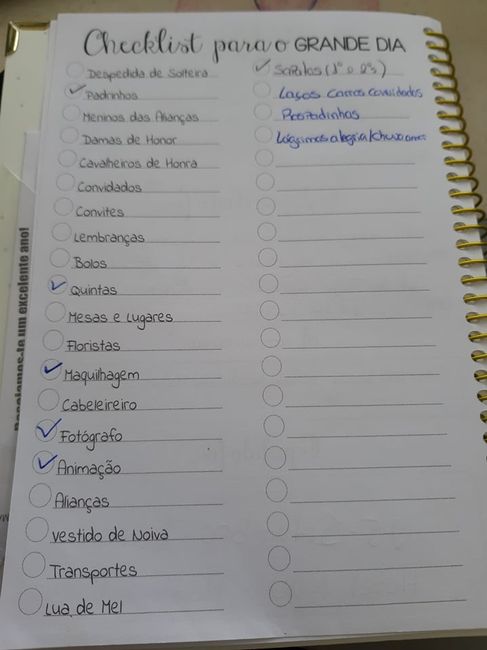 Checklist para o GRANDE DIA
Despedida de Solteira
Padrinhos
Meninos das Alianças
Damas de Honor
Cavalheiros de Honra
Convidados
Convites
Lembranças
Bolos
Quintas
Mesas e Lugares
Floristas
Maquilhagem
Cabeleireiro
Fotógrafo
Animação
Alianças
Vestido de Noiva
Transportes
Lua de Mel
Sapatos (1º e 2ºs)
Laços carros convidados
Lágrimas alegria/
um excelente ano!